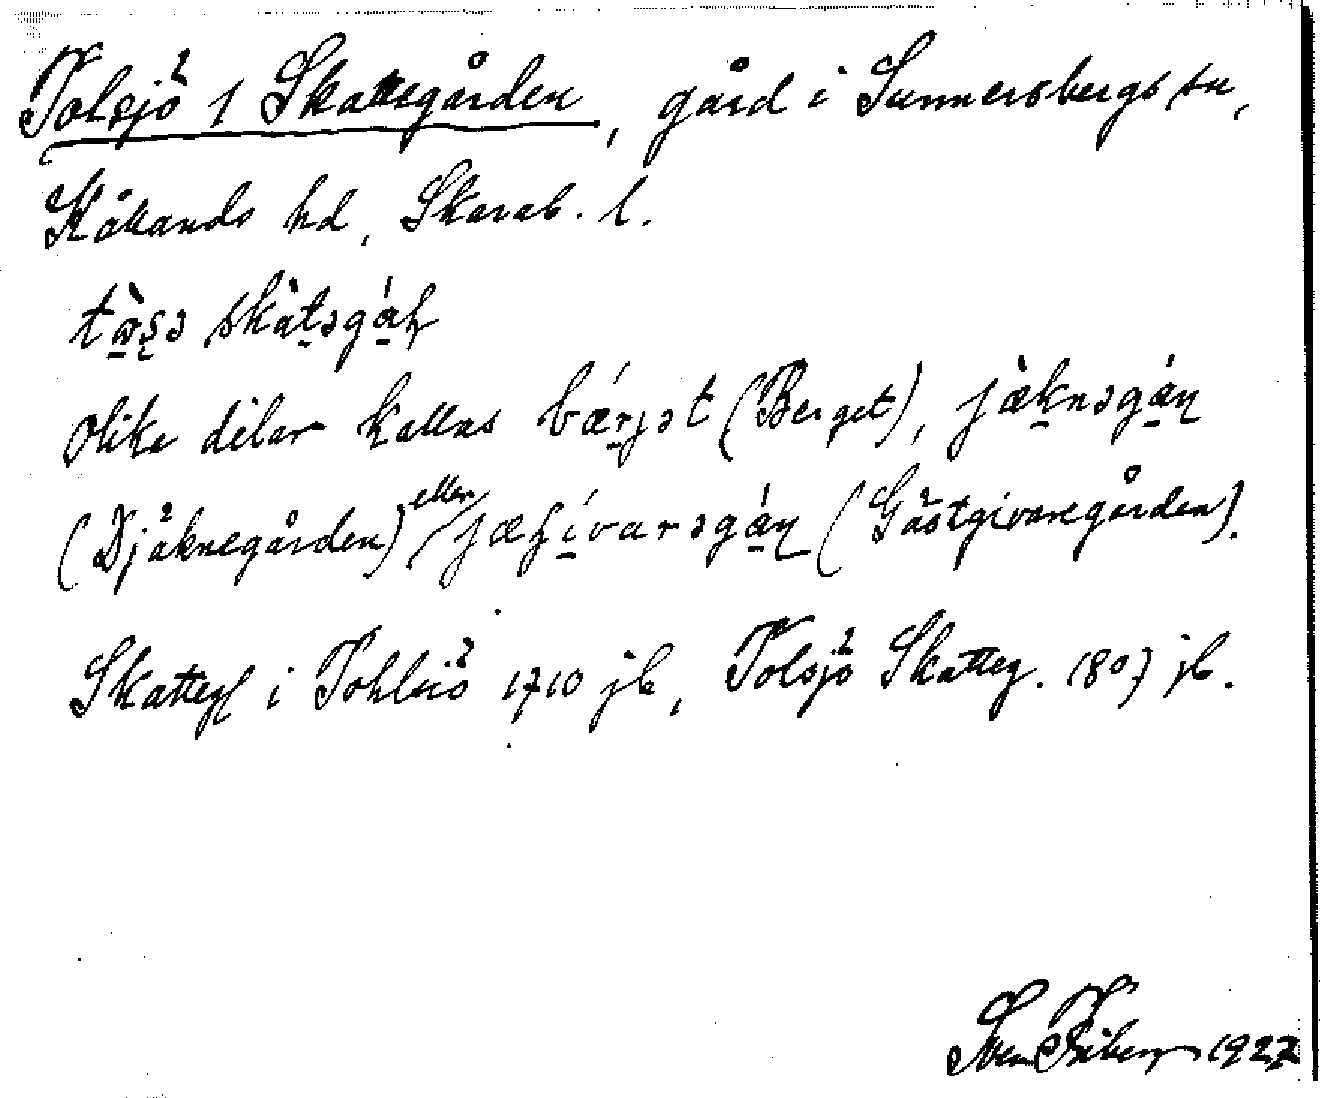 Tolsjö 1 Skattegården, gård i Sunnersbergs sn,
Kållands hd, Skarab. l.
olika delar kallas bǽrjət (Berget), jæ̀knəgán
(Djäknegården) eller (Gästgivaregården).
Skatteg i Tohlsiö 1710 jb, Tolsjö Skatteg. 1807 jb.
Sven Friberg 1927